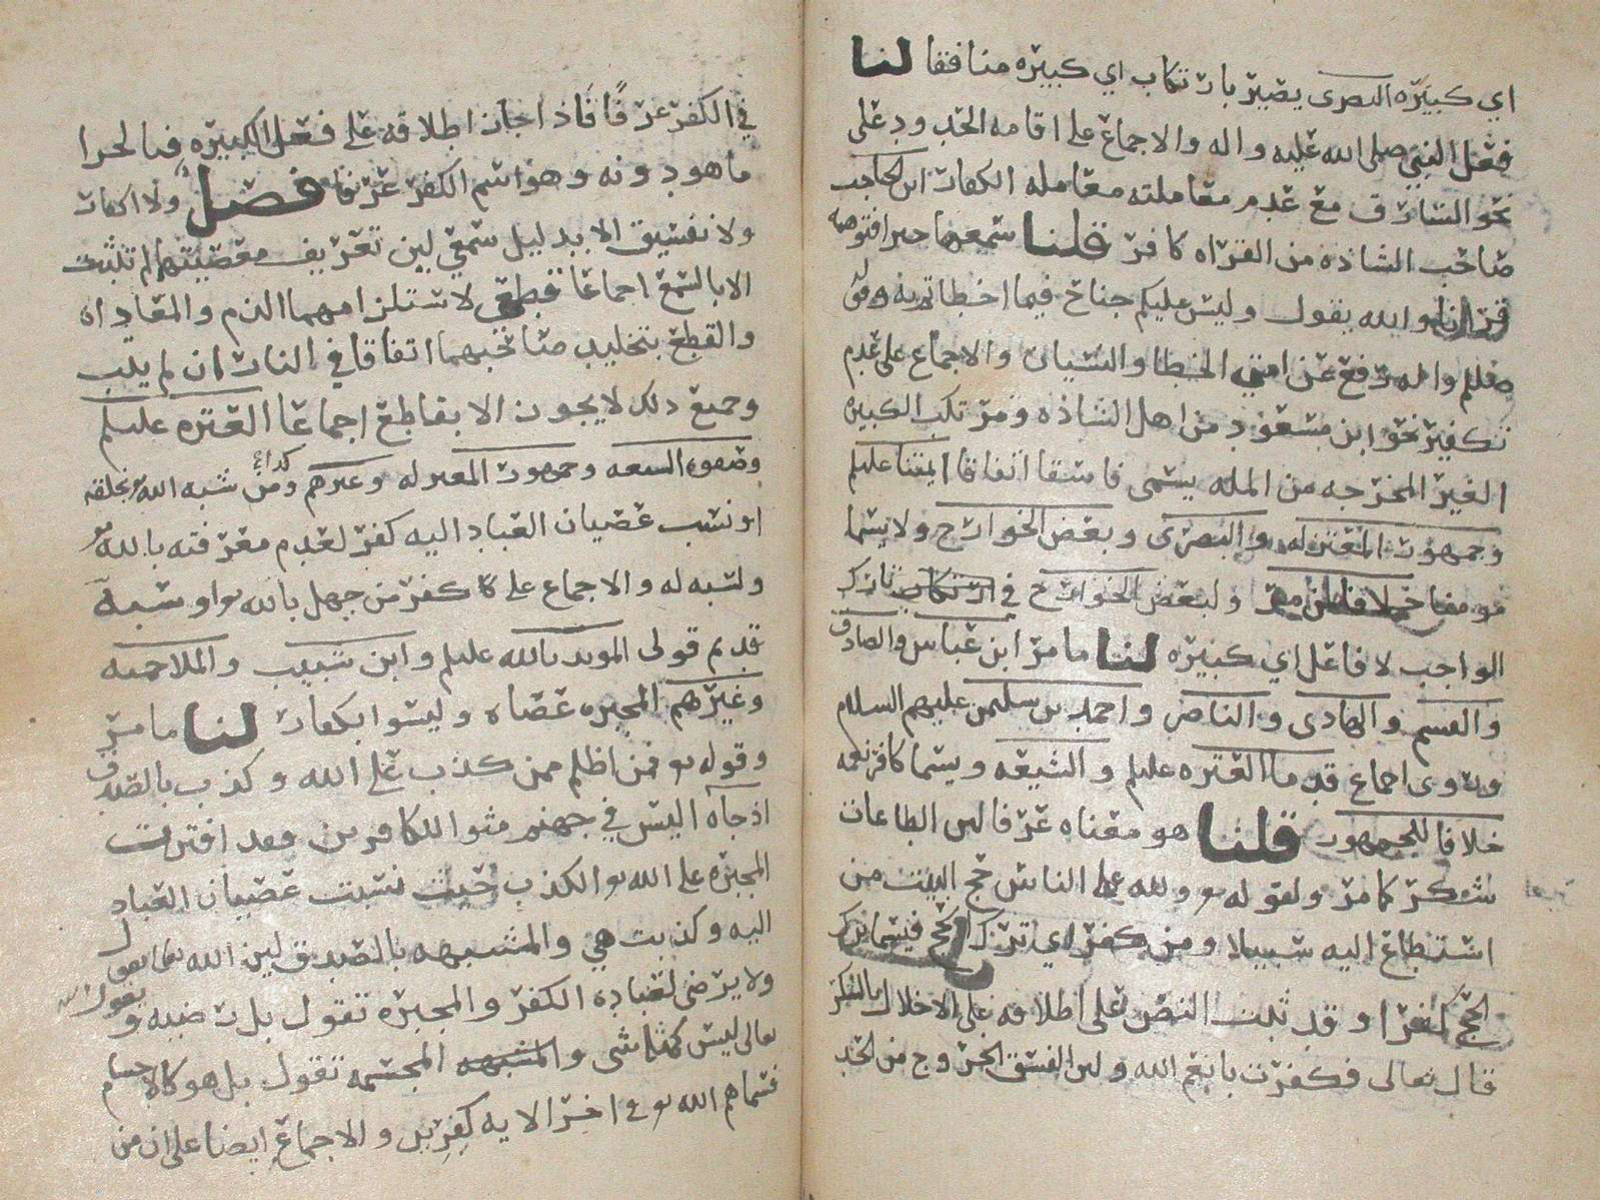 اي كبيره البصرى يصير بارتكاب اي كبيره منافقا لنا
فعل النبي صلى الله عليه واله والاجماع على اقامه الحدود على
نحو السارق مع عدم معاملته معامله الكفار ابن الحاجب
صاحب الشاذه من القراه كافر قلنا سمعها خبرا فتوهمه
قرانا والله يقول وليس عليكم جناح فيما اخطاتم به وقوله
صلعم واله رفع عن امتي الخطا والنسيان والاجماع على عدم
تكفير نحو ابن مسعود من اهل الشاذه ومرتكب الكبيره
الغير المخرجه من المله يسمى فاسقا اتفاقا ايمتنا عليلم
وجمهور المعتزله والبصرى وبعض الخوارج ولا يسما
مومنا خلافا لمن مر ولبعض الخوارج في ارتكاب تارك
الواجب لا فاعل اي كبيره لنا ما مر ابن عباس والصادق
والقسم والهادى والناصر واحمد بن سليمن عليهم السلام
وروى اجماع قدما العتره عليلم والشيعه ويسما كافر نعمه
خلافا للجمهور قلنا هو معناه عرفا لين الطاعات
شكر كما مر ولقوله تع ولله على الناس حج البيت من
استطاع اليه سبيلا ومن كفر اي ترك الحج فسما ترك
الحج كفرا وقد ثبت النص على اطلاقه على الاخلال بالشكر
قال تعالى فكفرت بانعم الله ولين الفسق الخروج من الحد
في الكفر عرفا فاذا جاز اطلاقه على فعل الكبيره فبالحرا
ما هو دونه وهو اسم الكفر عرفا فصل ولا اكفار
ولا تفسيق الا بدليل سمعي لين تعريف معصيتهما لم تثبت
الا بالسمع اجماعا قطعي لاستلزامهما الذم والمعاداه
والقطع بتخليد صاحبهما اتفاقا في النار ان لم يتب
وجميع ذلك لا يجوز الا بقاطع اجماعا العتره عليلم
وصفوه الشيعه وجمهور المعتزله وغيرهم كذا ومن شبه الله تع بخلقه
او نسب عصيان العباد اليه كفر لعدم معرفته بالله تع
ولسبه له والاجماع على كفر من جهل بالله تع او سبه
قديم قولى المويد بالله عليلم وابن شبيب والملاحميه
وغيرهم المجبره عصاه وليسوا بكفار لنا ما مر
وقوله تع فمن اظلم ممن كذب على الله وكذب بالصدق
اذ جآه اليس في جهنم مثوا للكافرين وقد افترت
المجبره على الله تع الكذب حيث نسبت عصيان العباد
اليه وكذبت هي والمشبهه بالصدق لين الله تعالى يقول
ولا يرضى لعباده الكفر والمجبره تقول بل رضيه ويقول الله
تعالى ليس كمثله شى والمشبهه المجسمه تقول بل هو كالاجسام
فسماهم الله تع في اخر الايه كفرين والاجماع ايضا على ان من